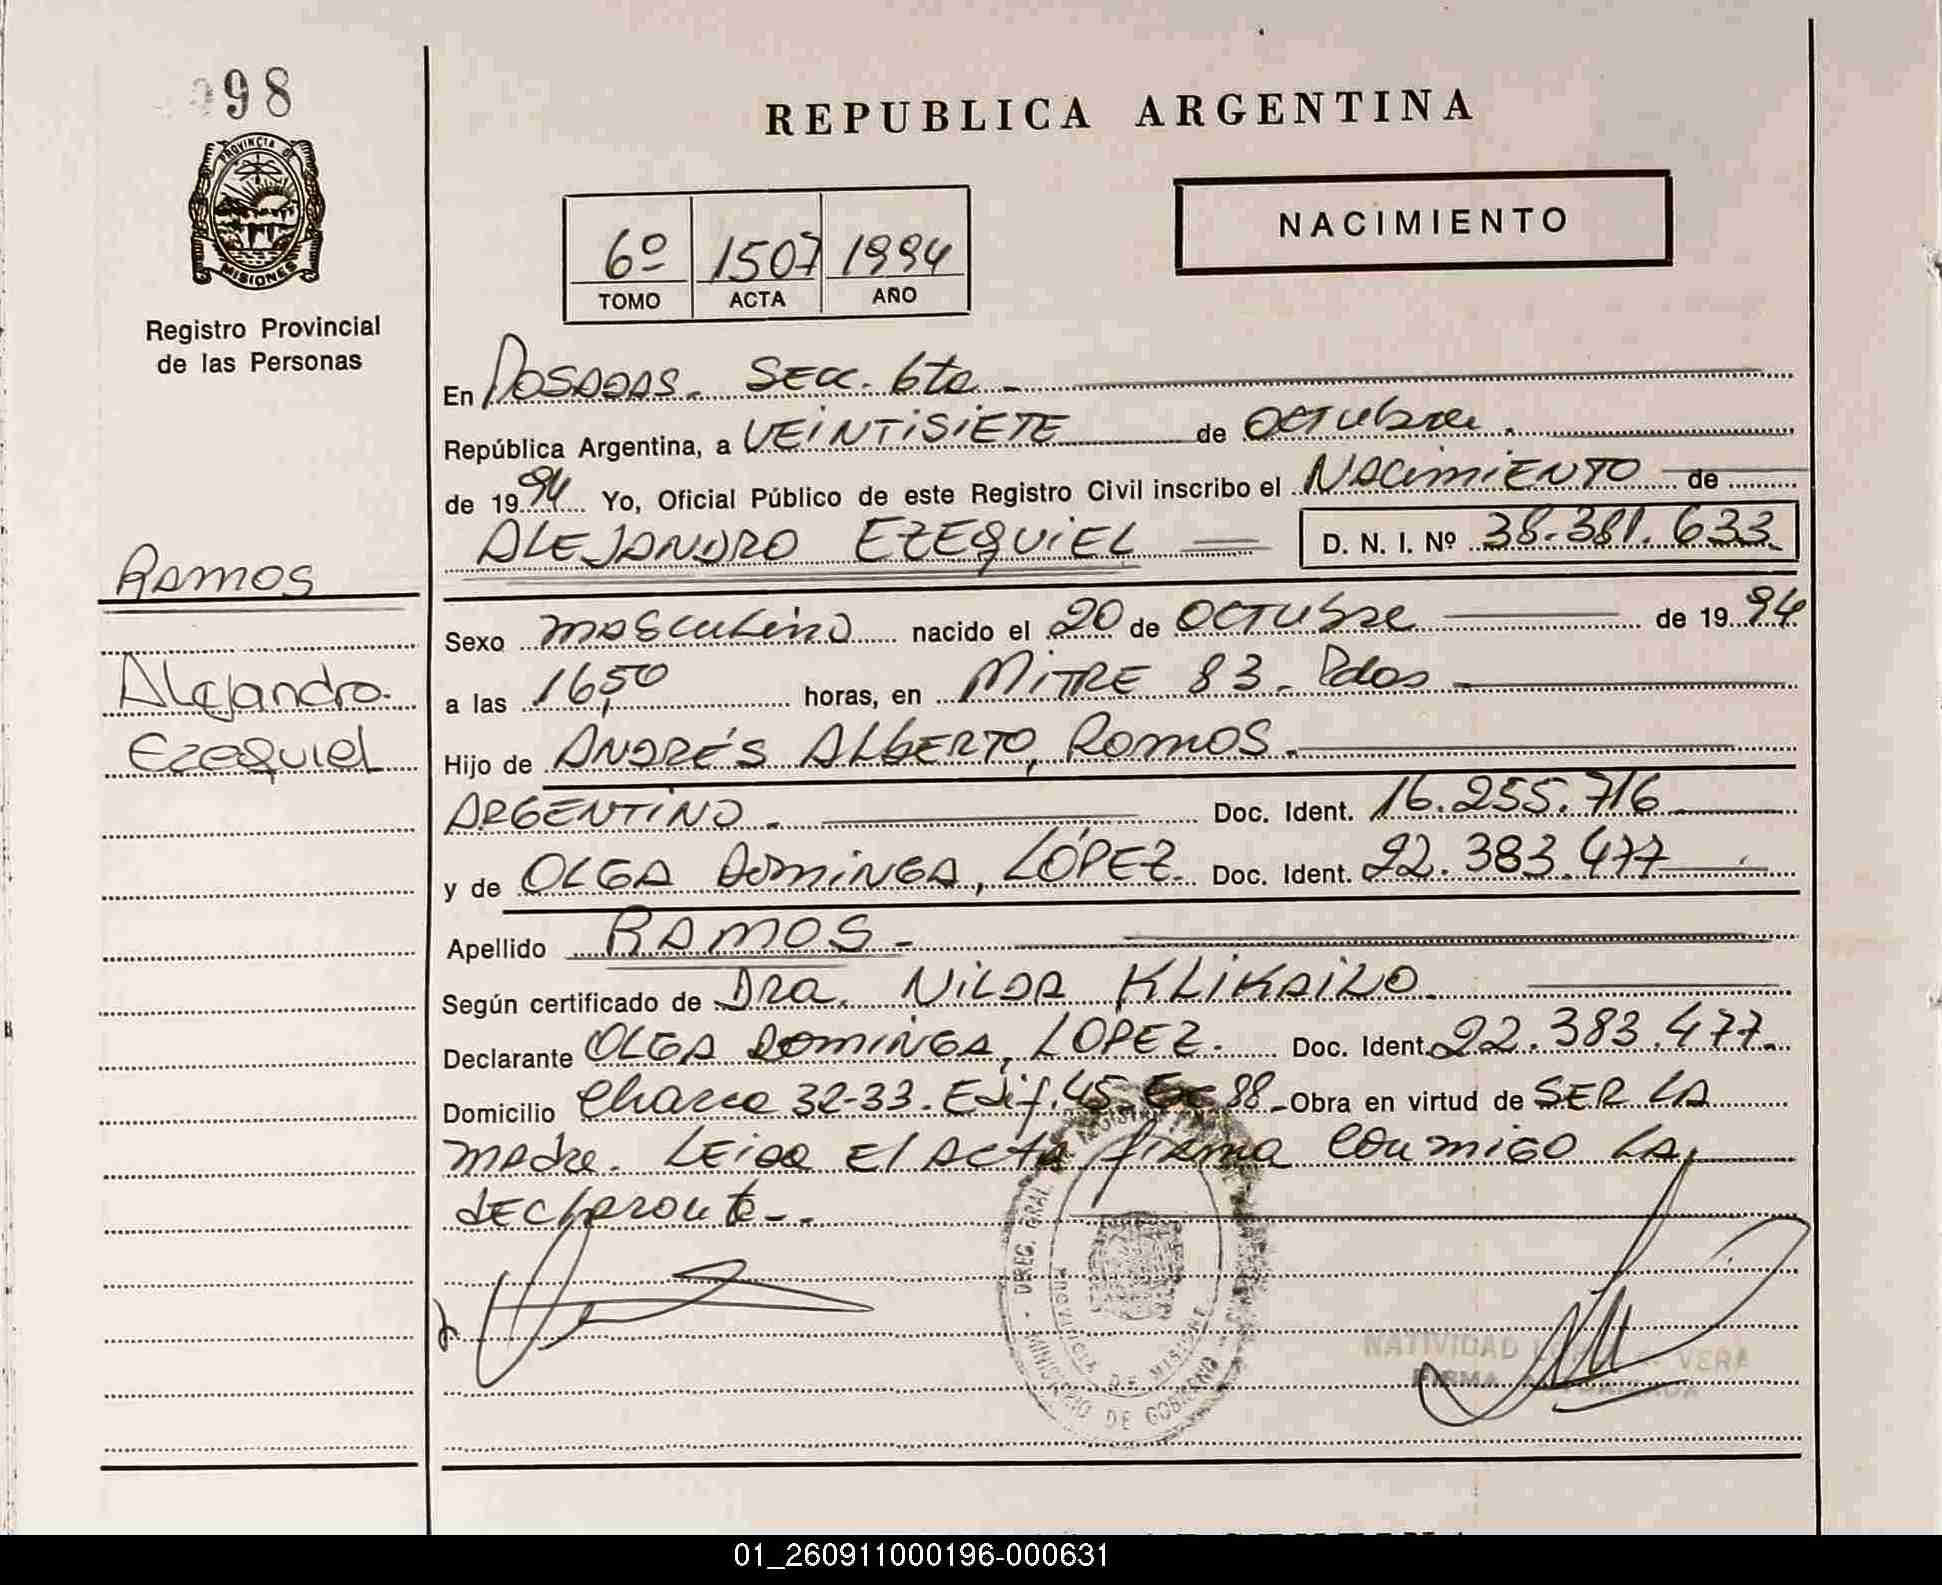 98
PROVINCIA DE
MISIONES
Registro Provincial
de las Personas
Ramos
Alejandro.
Ezequiel
REPUBLICA ARGENTINA
NACIMIENTO
6º 1507 1994
TOMO ACTA AÑO
En POSADAS. SECC. 6ta.
República Argentina, a VEINTISIETE de OCTUbre.
de 1994 Yo, Oficial Público de este Registro Civil inscribo el NACIMIENTO de
ALEJANDRO EZEQUIEL D. N. I. Nº 38.381.633
Sexo masculino nacido el 20 de OCTUbre de 1994
a las 16,50 horas, en MITRE 83. Pdas
Hijo de ANDRÉS ALBERTO, Ramos.
ARGENTINO. Doc. Ident. 16.255.716
y de OLGA DOMINGA, LÓPEZ. Doc. Ident. 22.383.477
Apellido RAMOS.
Según certificado de Dra. NILDA
Declarante OLGA DOMINGA, LOPEZ. Doc. Ident. 22.383.477.
Domicilio Chacra 32-33. Edif. 45 88. Obra en virtud de SER LA
madre. LEIDA El ACTA firma conmigo LA
declarante.
DIREC. GRAL.
PROVINCIA DE MISIONES
MINISTERIO DE GOBIERNO
NATIVIDAD VERA
FIRMA
01_260911000196-000631